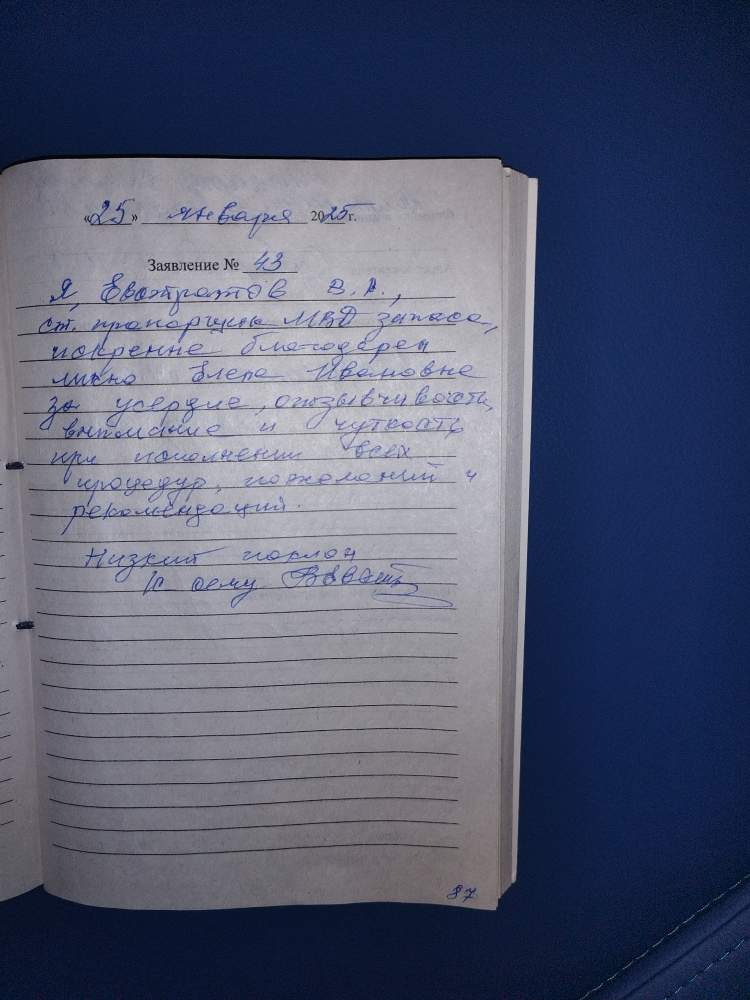 «25» января 2025г.
Заявление № 43
Я, Евстратов В.А.,
ст. прапорщик МВД запаса,
искренне благодарен
лично Елена Ивановне
за усердие, отзывчивость,
внимание и чуткость
при исполнении всех
процедур, пожеланий и
рекомендаций.
Низкий поклон
К сему
87